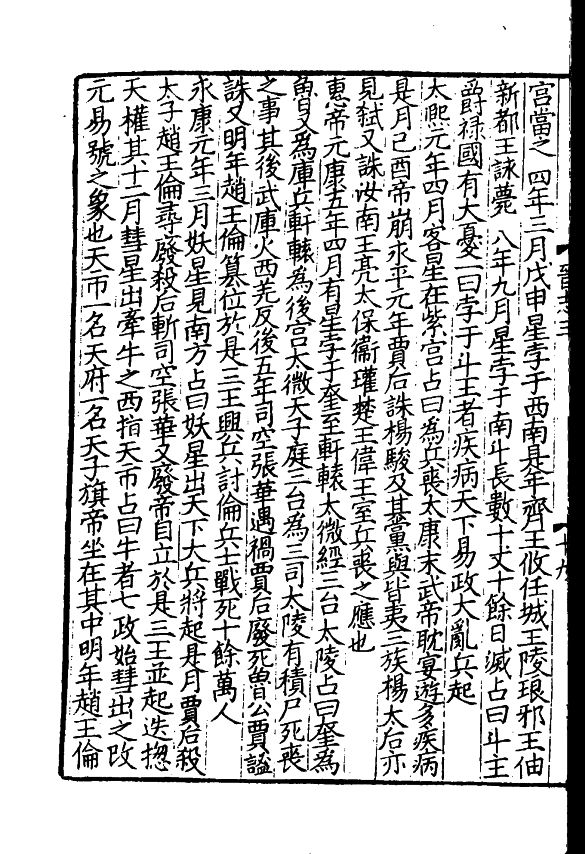 宫當之 四年三月戊申星孛于西南是年齊王攸任城王陵琅邪王伷
新都王詠薨 八年九月星孛于南斗長數十丈十餘日滅占曰斗主
爵禄國有大憂一曰孛于斗王者疾病天下易政大亂兵起
太熙元年四月客星在紫宫占曰為兵喪太康末武帝耽宴遊多疾病
是月己酉帝崩永平元年賈后誅楊駿及其黨與皆夷三族楊太后亦
見弑又誅汝南王亮太保衞瓘楚王偉王室兵喪之應也
惠帝元康五年四月有星孛于奎至軒轅太微經三台太陵占曰奎為
魯又為庫兵軒轅為後宫太微天子庭三台為三司太陵有積尸死喪
之事其後武庫火西羌反後五年司空張華遇禍賈后廢死魯公賈謐
誅又明年趙王倫篡位於是三王興兵討倫兵士戰死十餘萬人
永康元年三月妖星見南方占曰妖星出天下大兵將起是月賈后殺
太子趙王倫尋廢殺后斬司空張華又廢帝自立於是三王並起迭揔
天權其十二月彗星出牽牛之西指天市占曰牛者七政始彗出之改
元易號之象也天市一名天府一名天子旗帝坐在其中明年趙王倫